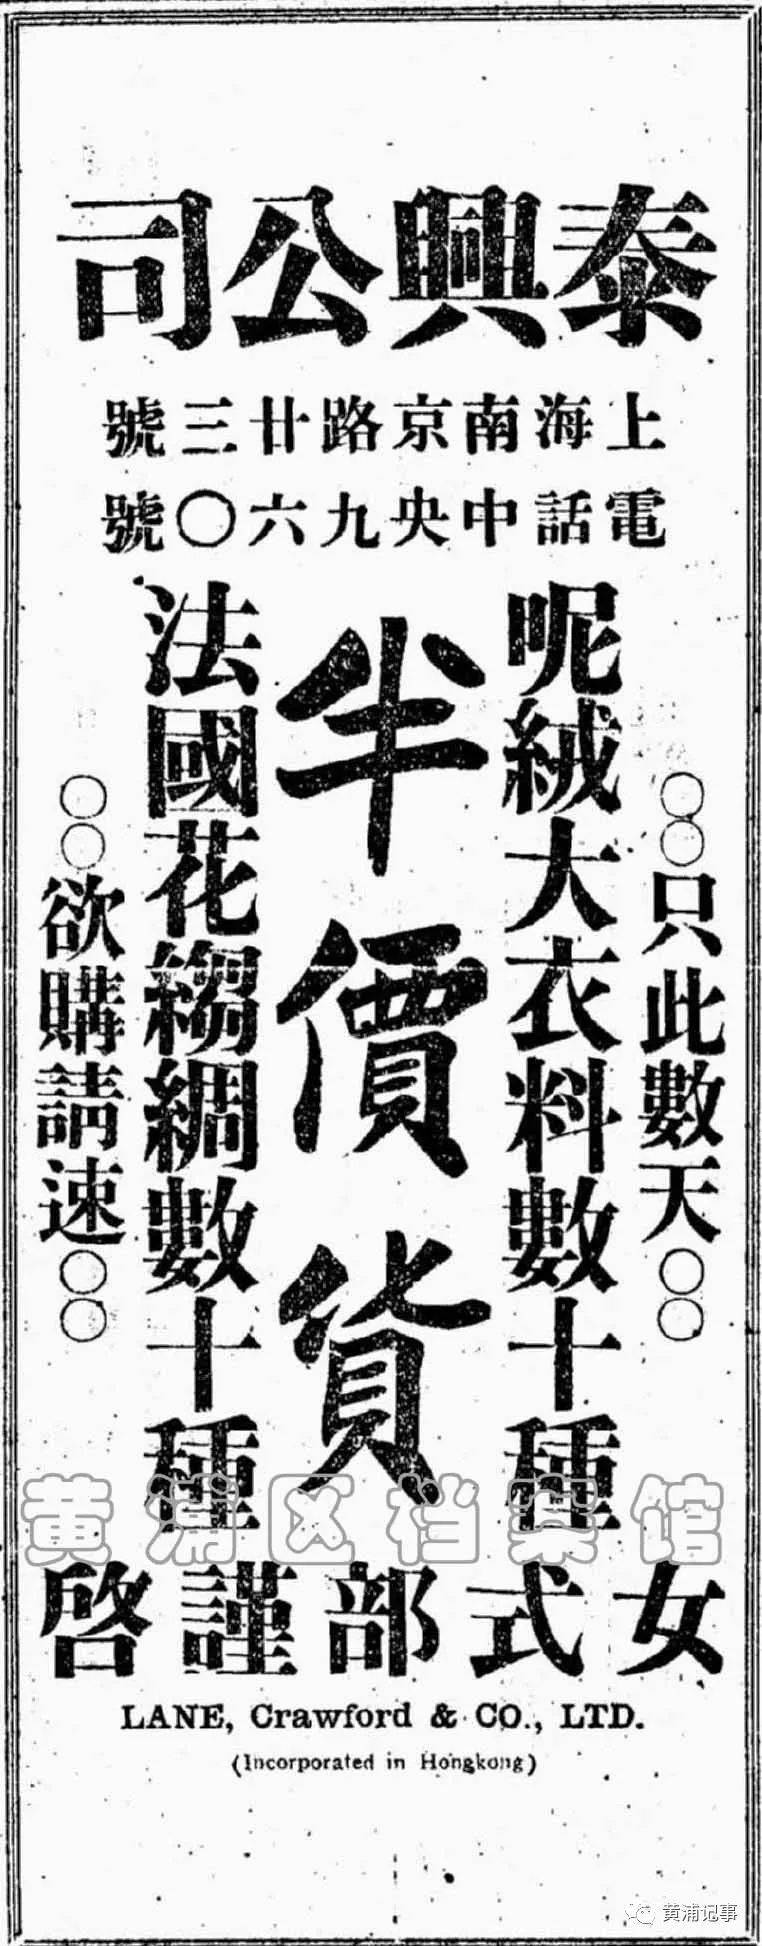 泰興公司
上海南京路廿三號
電話中央九六〇號
〇〇只此數天〇〇
呢絨大衣料數十種
半價貨
法國花縐綢數十種
〇〇欲購請速〇〇
女式部謹啓
LANE, Crawford & CO., LTD.
(Incorporated in Hongkong)
黄浦区档案馆
黄浦记事